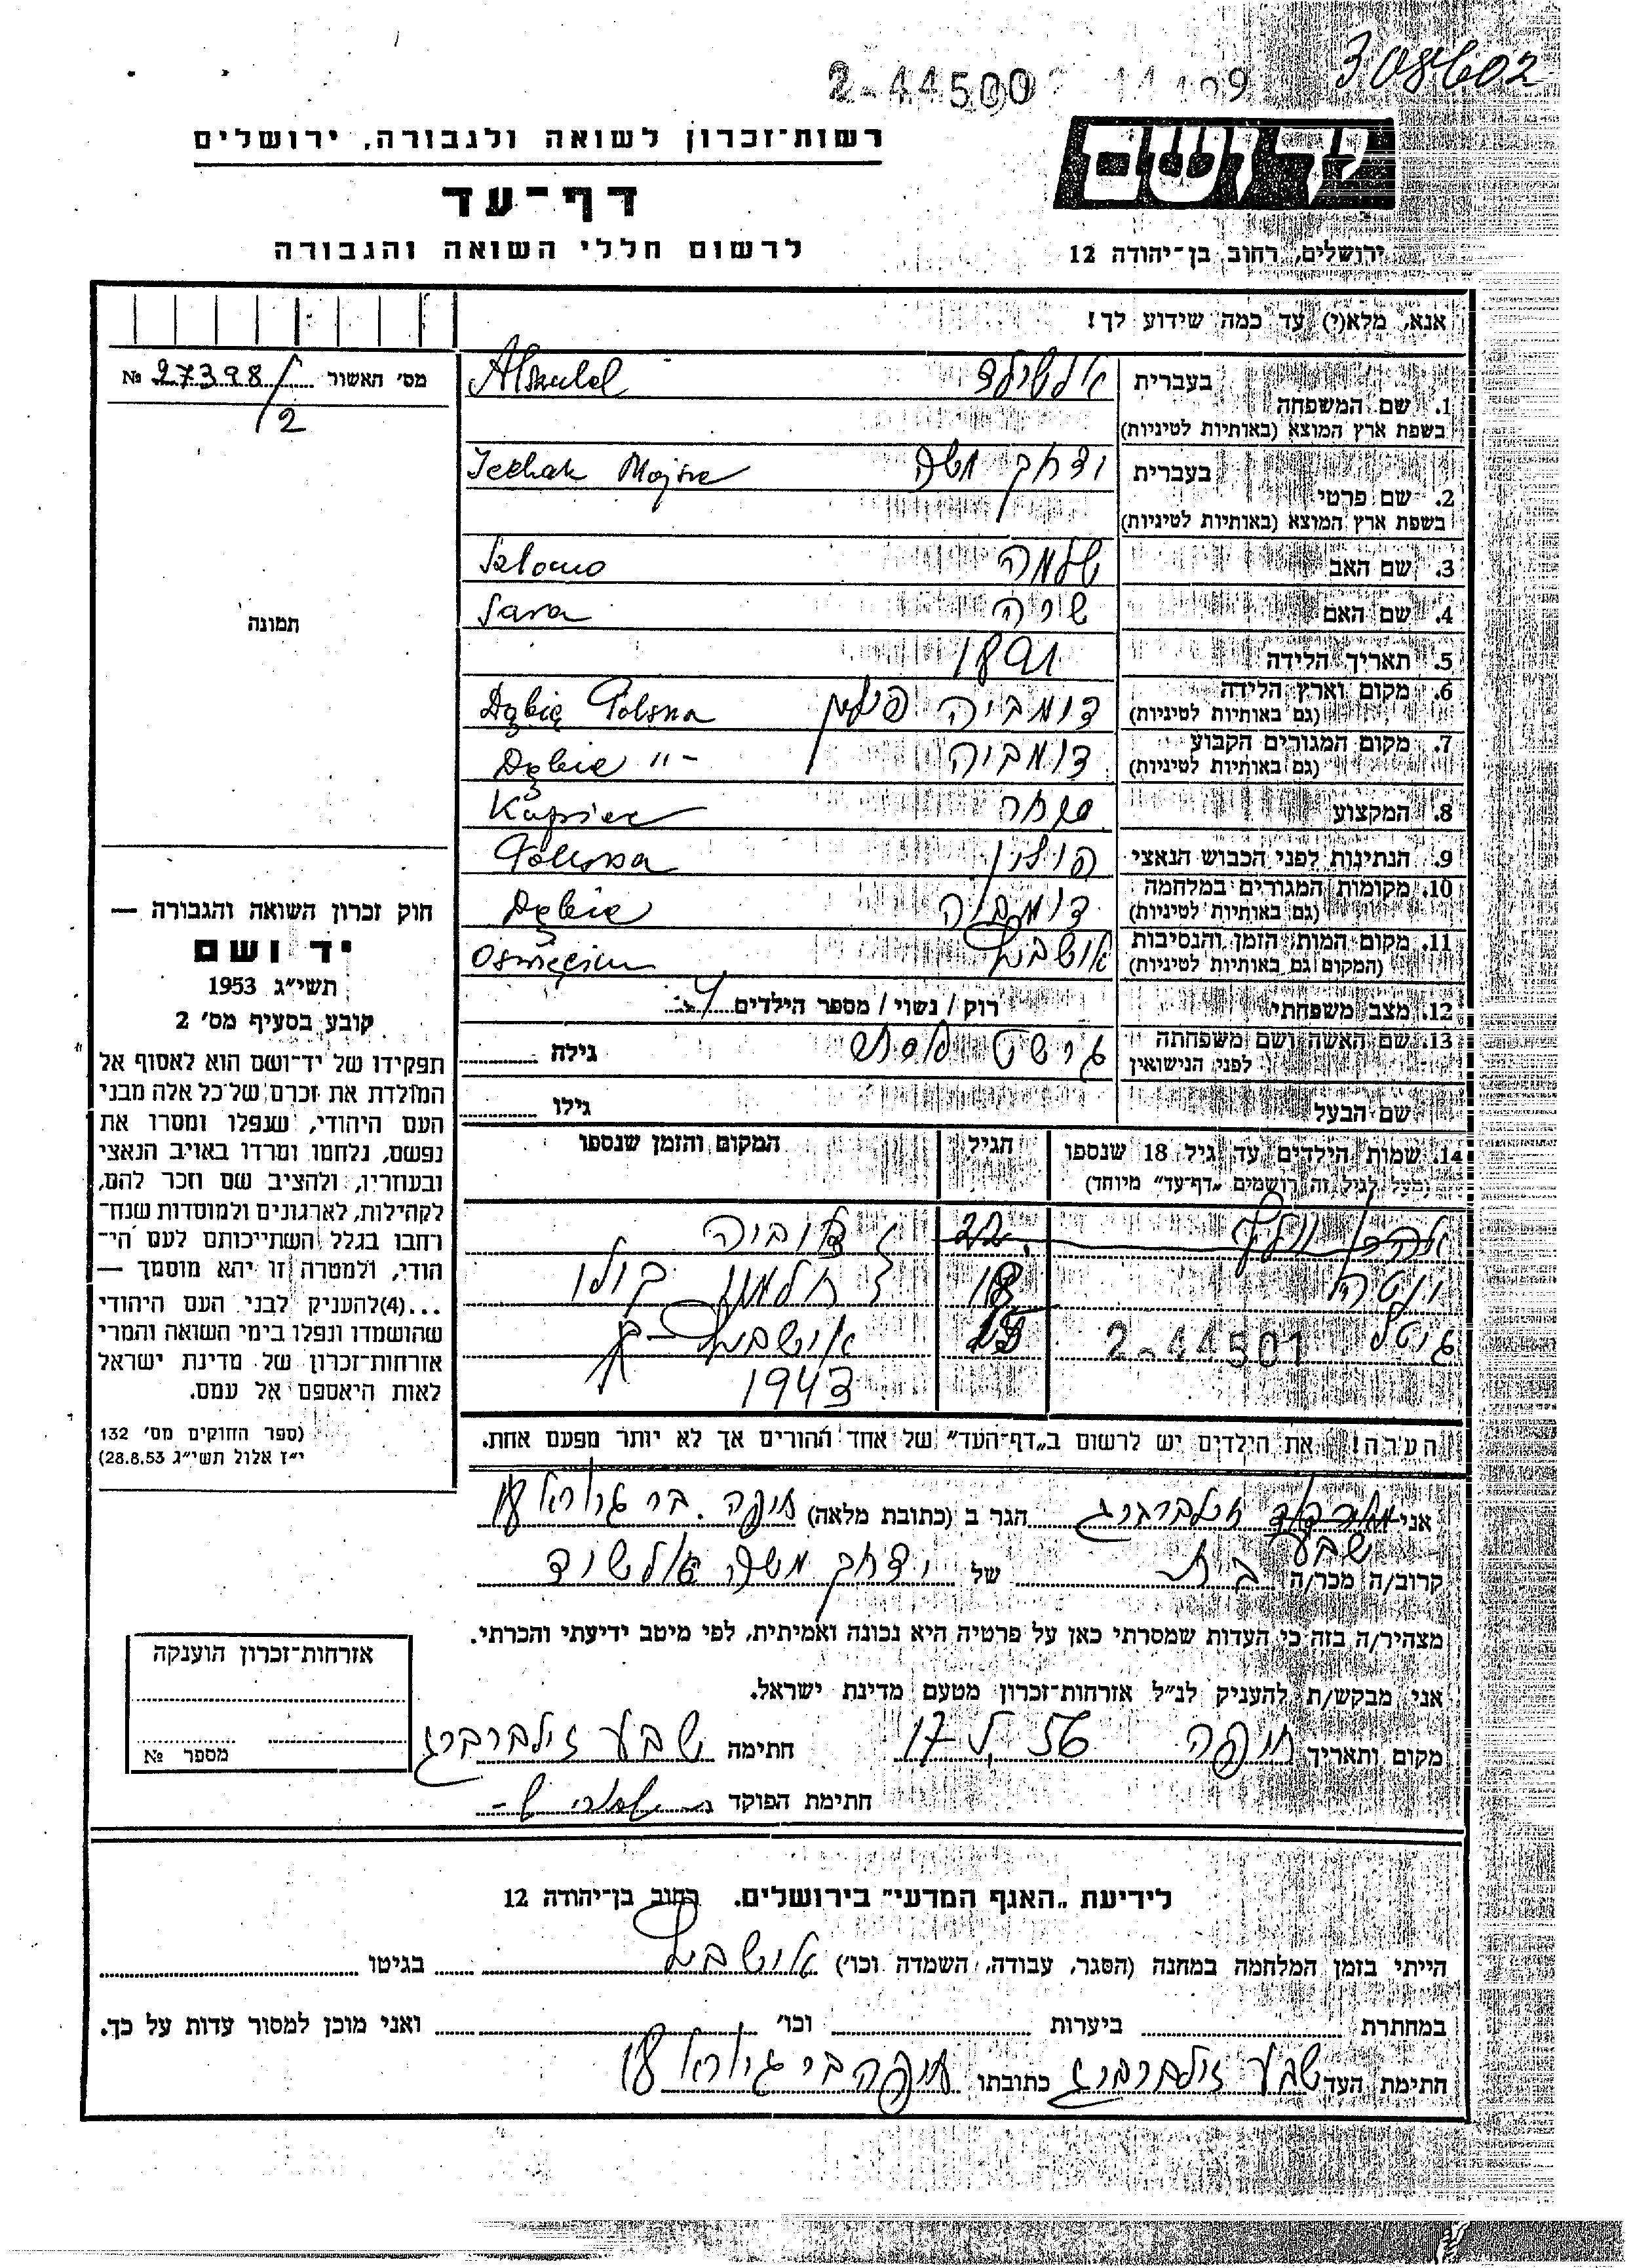 308602
2-44500
רשות־זכרון לשואה ולגבורה, ירושלים
יד ושם
דף־עד
לרשום חללי השואה והגבורה
ירושלים, רחוב בן־יהודה 12
אנא, מלא(י) עד כמה שידוע לך!
מס׳ האשור № 27398/2
1. שם המשפחה
בעברית
Alszuld
בשפת ארץ המוצא (באותיות לטיניות)
2. שם פרטי
בעברית יצחק משה Icchak Mojsze
בשפת ארץ המוצא (באותיות לטיניות)
3. שם האב שלמה Szlomo
4. שם האם שרה Sara
5. תאריך הלידה 1891
6. מקום וארץ הלידה דומביה פולין Dąbie Polska
(גם באותיות לטיניות)
7. מקום המגורים הקבוע דומביה Dąbie -"-
(גם באותיות לטיניות)
8. המקצוע סוחר Kupiec
9. הנתינות לפני הכבוש הנאצי פולין Polska
10. מקומות המגורים במלחמה דומביה Dąbie
(גם באותיות לטיניות)
11. מקום המות, הזמן והנסיבות אושביץ Oświęcim
(המקום גם באותיות לטיניות)
12. מצב משפחתי רוק / נשוי / מספר הילדים 4
13. שם האשה ושם משפחתה
לפני הנישואין
גילה
שם הבעל גילו
14. שמות הילדים עד גיל 18 שנספו הגיל המקום והזמן שנספו
(מעל לגיל זה רושמים „דף־עד" מיוחד)
22
18
אושביץ
2-44501
1943
הערה! את הילדים יש לרשום ב„דף־העד" של אחד ההורים אך לא יותר מפעם אחת.
תמונה
חוק זכרון השואה והגבורה —
יד ושם
תשי״ג 1953
קובע בסעיף מס׳ 2
תפקידו של יד־ושם הוא לאסוף אל
המולדת את זכרם של כל אלה מבני
העם היהודי, שנפלו ומסרו את
נפשם, נלחמו ומרדו באויב הנאצי
ובעוזריו, ולהציב שם וזכר להם,
לקהילות, לארגונים ולמוסדות שנח־
רבו בגלל השתייכותם לעם הי־
הודי, ולמטרה זו יהא מוסמך —
...(4)להעניק לבני העם היהודי
שהושמדו ונפלו בימי השואה והמרי
אזרחות־זכרון של מדינת ישראל
לאות היאספם אל עמם.
(ספר החוקים מס׳ 132
י״ז אלול תשי״ג 28.8.53)
אני שבע זילברברג הגר ב (כתובת מלאה) חיפה
קרוב/ה מכר/ה בת של יצחק משה אלשולד
מצהיר/ה בזה כי העדות שמסרתי כאן על פרטיה היא נכונה ואמיתית, לפי מיטב ידיעתי והכרתי.
אני מבקש/ת להעניק לנ״ל אזרחות־זכרון מטעם מדינת ישראל.
מקום ותאריך חיפה חתימה שבע זילברברג
חתימת הפוקד
אזרחות־זכרון הוענקה
מספר №
לידיעת „האגף המדעי" בירושלים. רחוב בן־יהודה 12
הייתי בזמן המלחמה במחנה (הסגר, עבודה, השמדה וכו׳) אושביץ בגיטו
במחתרת ביערות וכו׳ ואני מוכן למסור עדות על כך.
חתימת העד שבע זילברברג כתובתו חיפה